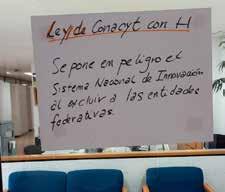 Ley de Conacyt con H
Se pone en peligro el
Sistema Nacional de Innovación
al excluir a las entidades
federativas.